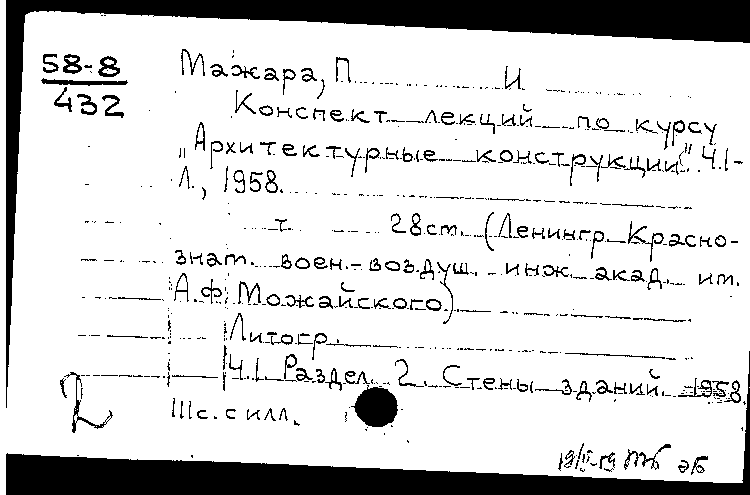 58-8
432
Мажара, П И
Конспект лекций по курсу
„Архитектурные конструкции". Ч.1-
Л., 1958.
т. 28см. (Ленингр. Красно-
знам. воен.-воздуш. инж. акад. им.
А.Ф. Можайского)
Литогр.
Ч.1. Раздел. 2. Стены зданий. 1958.
111с. с илл.
2